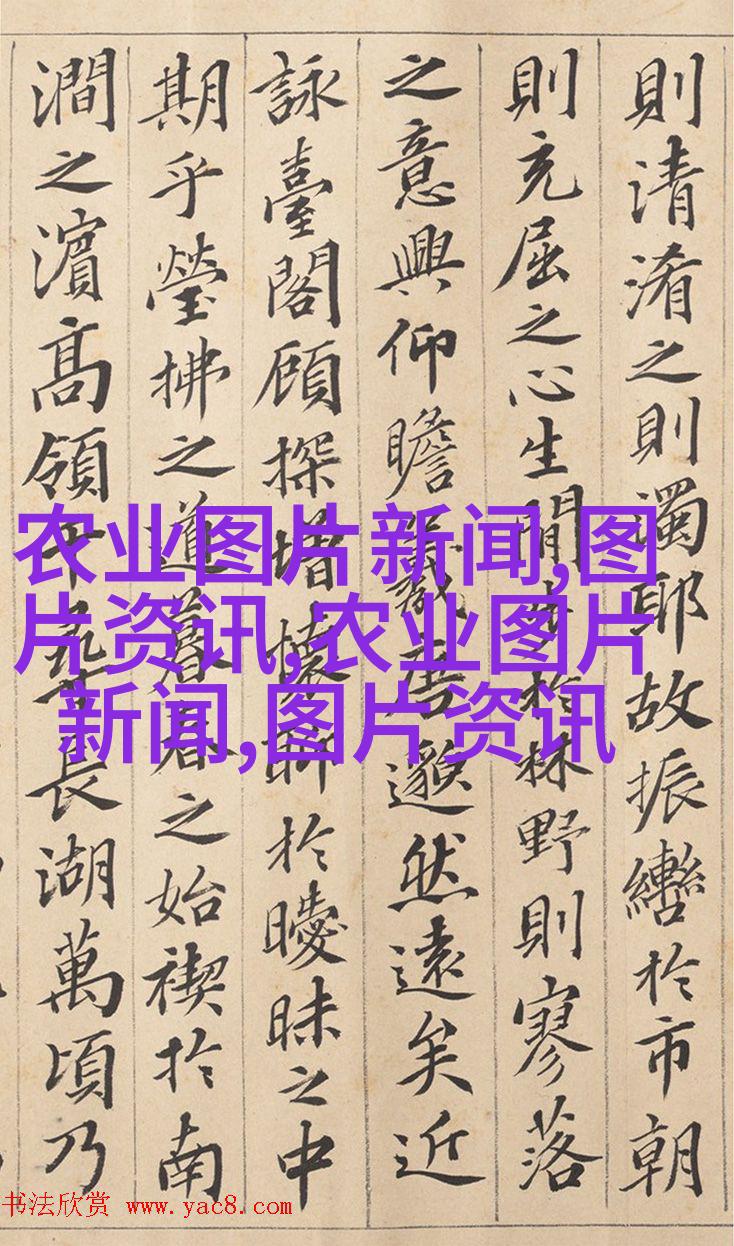 則清淆之則濁耶故振轡於市朝
則充屈之心生閒步於林野則寥落
之意興仰瞻羲唐邈然遠矣近
詠臺閣顧探增懷聊於曖昧之中
期乎瑩拂之道暮春之始禊於南
澗之濱高領千尋長湖萬頃乃
农业图片新闻,图
片资讯,农业图片
新闻,图片资讯
书法欣赏 www.yac8.com